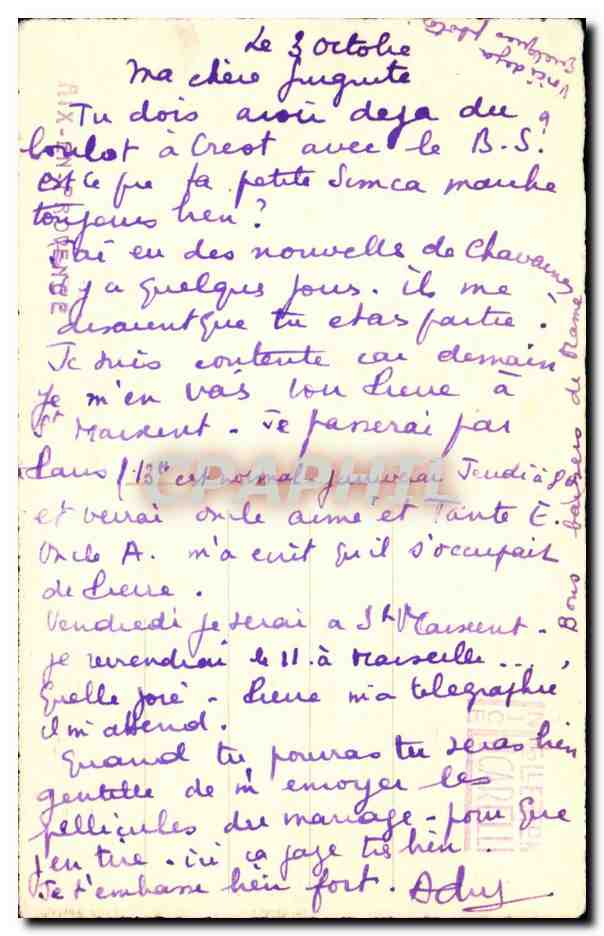 Le 3 Octobre
Ma chère
Tu dois avoir deja du
boulot à avec le B.S.
est ce que ta petite Simca marche
toujours bien ?
J'ai eu des nouvelles de Chavannes
y a quelques jours. ils me
disaient que tu etais partie.
Je suis contente car demain
je m'en vais voir Pierre à
St Maixent - Je passerai par
Paris Jeudi à
et verrai oncle aimé et Tante E.
Oncle A. m'a ecrit qu'il s'occupait
de Pierre.
Vendredi je serai a St Maixent -
je reviendrai le 11 à Marseille...
Quelle joie - Pierre m'a telegraphié
il m'attend.
Quand tu pourras tu seras bien
gentille de m'envoyer les
pellicules du mariage - pour que
j'en tire - ici ça gaze très bien.
Je t'embrasse bien fort.
Bons baisers de Mamé
Voici deja
quelques photos.
AIX-EN-PROVENCE
CPAPHIL